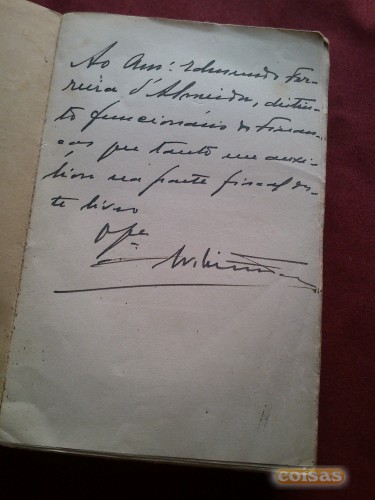 Ao Amº. Edmundo Fer-
reira d'Almeida, distin-
to funcionário de Finan-
ças que tanto me auxi-
liou na parte fiscal des-
te livro
Of.
coisas